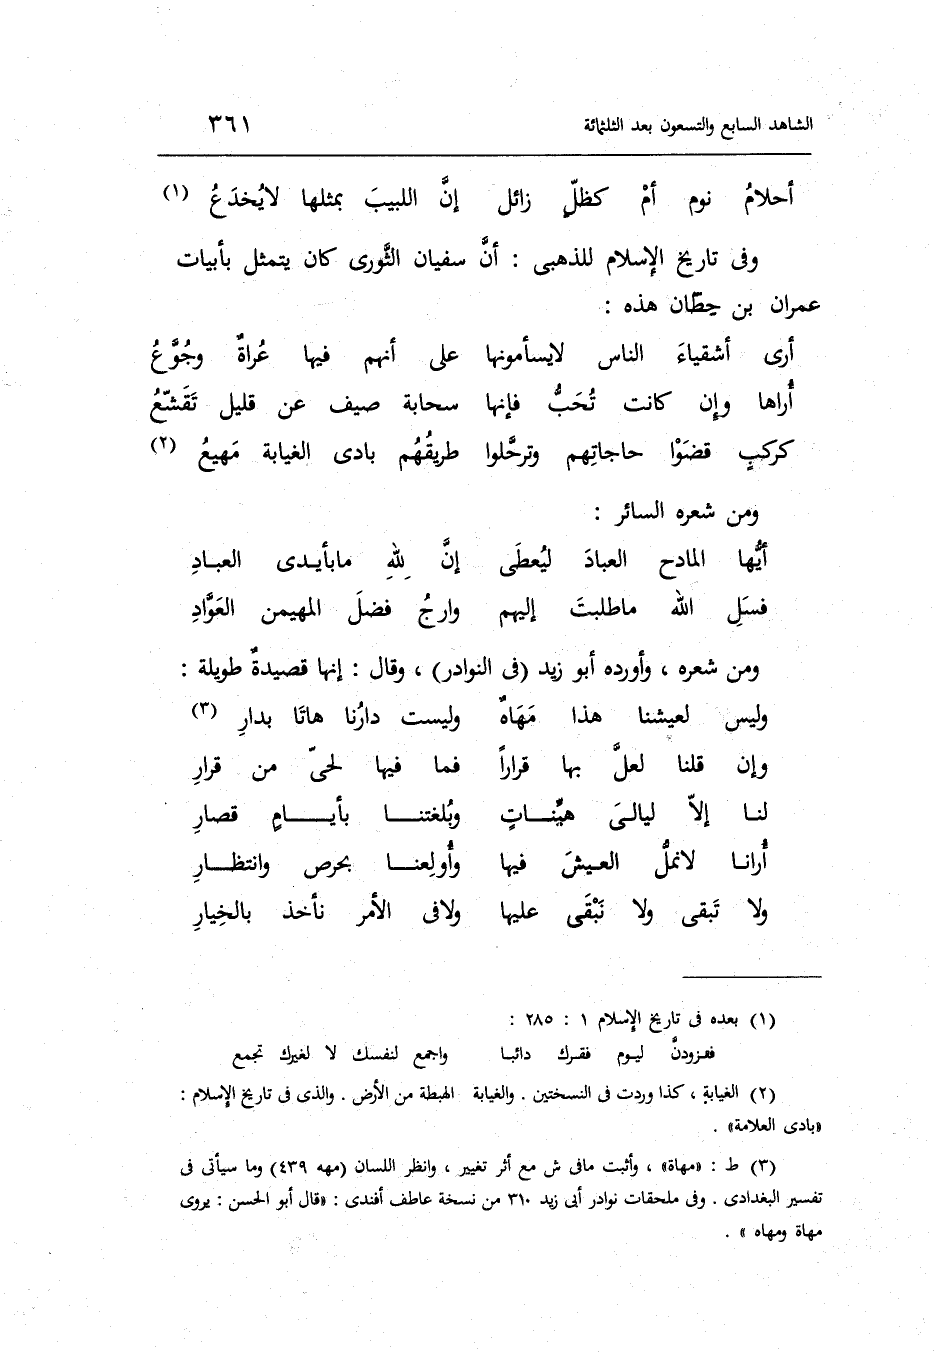 الشاهد السابع والتسعون بعد الثلثمائة ٣٦١
أحلامُ نوم أمْ كظلّ زائل إنَّ اللبيبَ بمثلها لايُخدَعُ (١)
وفى تاريخ الإسلام للذهبى : أنَّ سفيان الثَّورى كان يتمثل بأبيات
عمران بن حِطّان هذه :
أرى أشقياءَ الناس لايسأمونها على أنهم فيها عُراةٌ وجُوَّعُ
أُراها وإن كانت تُحَبُّ فإنها سحابة صيف عن قليل تَقَشّعُ
كركبٍ قضَوْا حاجاتِهم وترحَّلوا طريقُهُم بادى الغيابة مَهيعُ (٢)
ومن شعره السائر :
أيُّها المادح العبادَ ليُعطَى إنَّ لِلهِ مابأيـدى العبـادِ
فسَلِ الله ماطلبتَ إليهم وارجُ فضلَ المهيمن العَوَّادِ
ومن شعره ، وأورده أبو زيد (فى النوادر) ، وقال : إنها قصيدةٌ طويلة :
وليس لعيشنا هذا مَهَاهٌ وليست دارُنا هاتَا بدارِ (٣)
وإن قلنا لعلَّ بها قراراً فما فيها لحىّ من قرارِ
لنـا إلاّ ليالـىَ هيِّنـــاتٍ وبُلغتنـــا بأيـــــامٍ قصارِ
أُرانـا لانملُّ العـيشَ فيها وأُولِعنـــا بحرص وانتظـــارِ
ولا تَبقى ولا نَبْقَى عليها ولافى الأمر نأخذ بالخِيارِ
(١) بعده فى تاريخ الإسلام ١ : ٢٨٥ :
فتـزودنَّ ليـوم فقـرك دائبـا واجمع لنفسك لا لغيرك تجمع
(٢) الغيابة ، كذا وردت فى النسختين . والغيابة الهبطة من الأرض . والذى فى تاريخ الإسلام :
«بادى العلامة» .
(٣) ط : «مهاة» ، وأثبت مافى ش مع أثر تغيير ، وانظر اللسان (مهه ٤٣٩) وما سيأتى فى
تفسير البغدادى . وفى ملحقات نوادر أبى زيد ٣١٠ من نسخة عاطف أفندى : «قال أبو الحسن : يروى
مهاة ومهاه » .